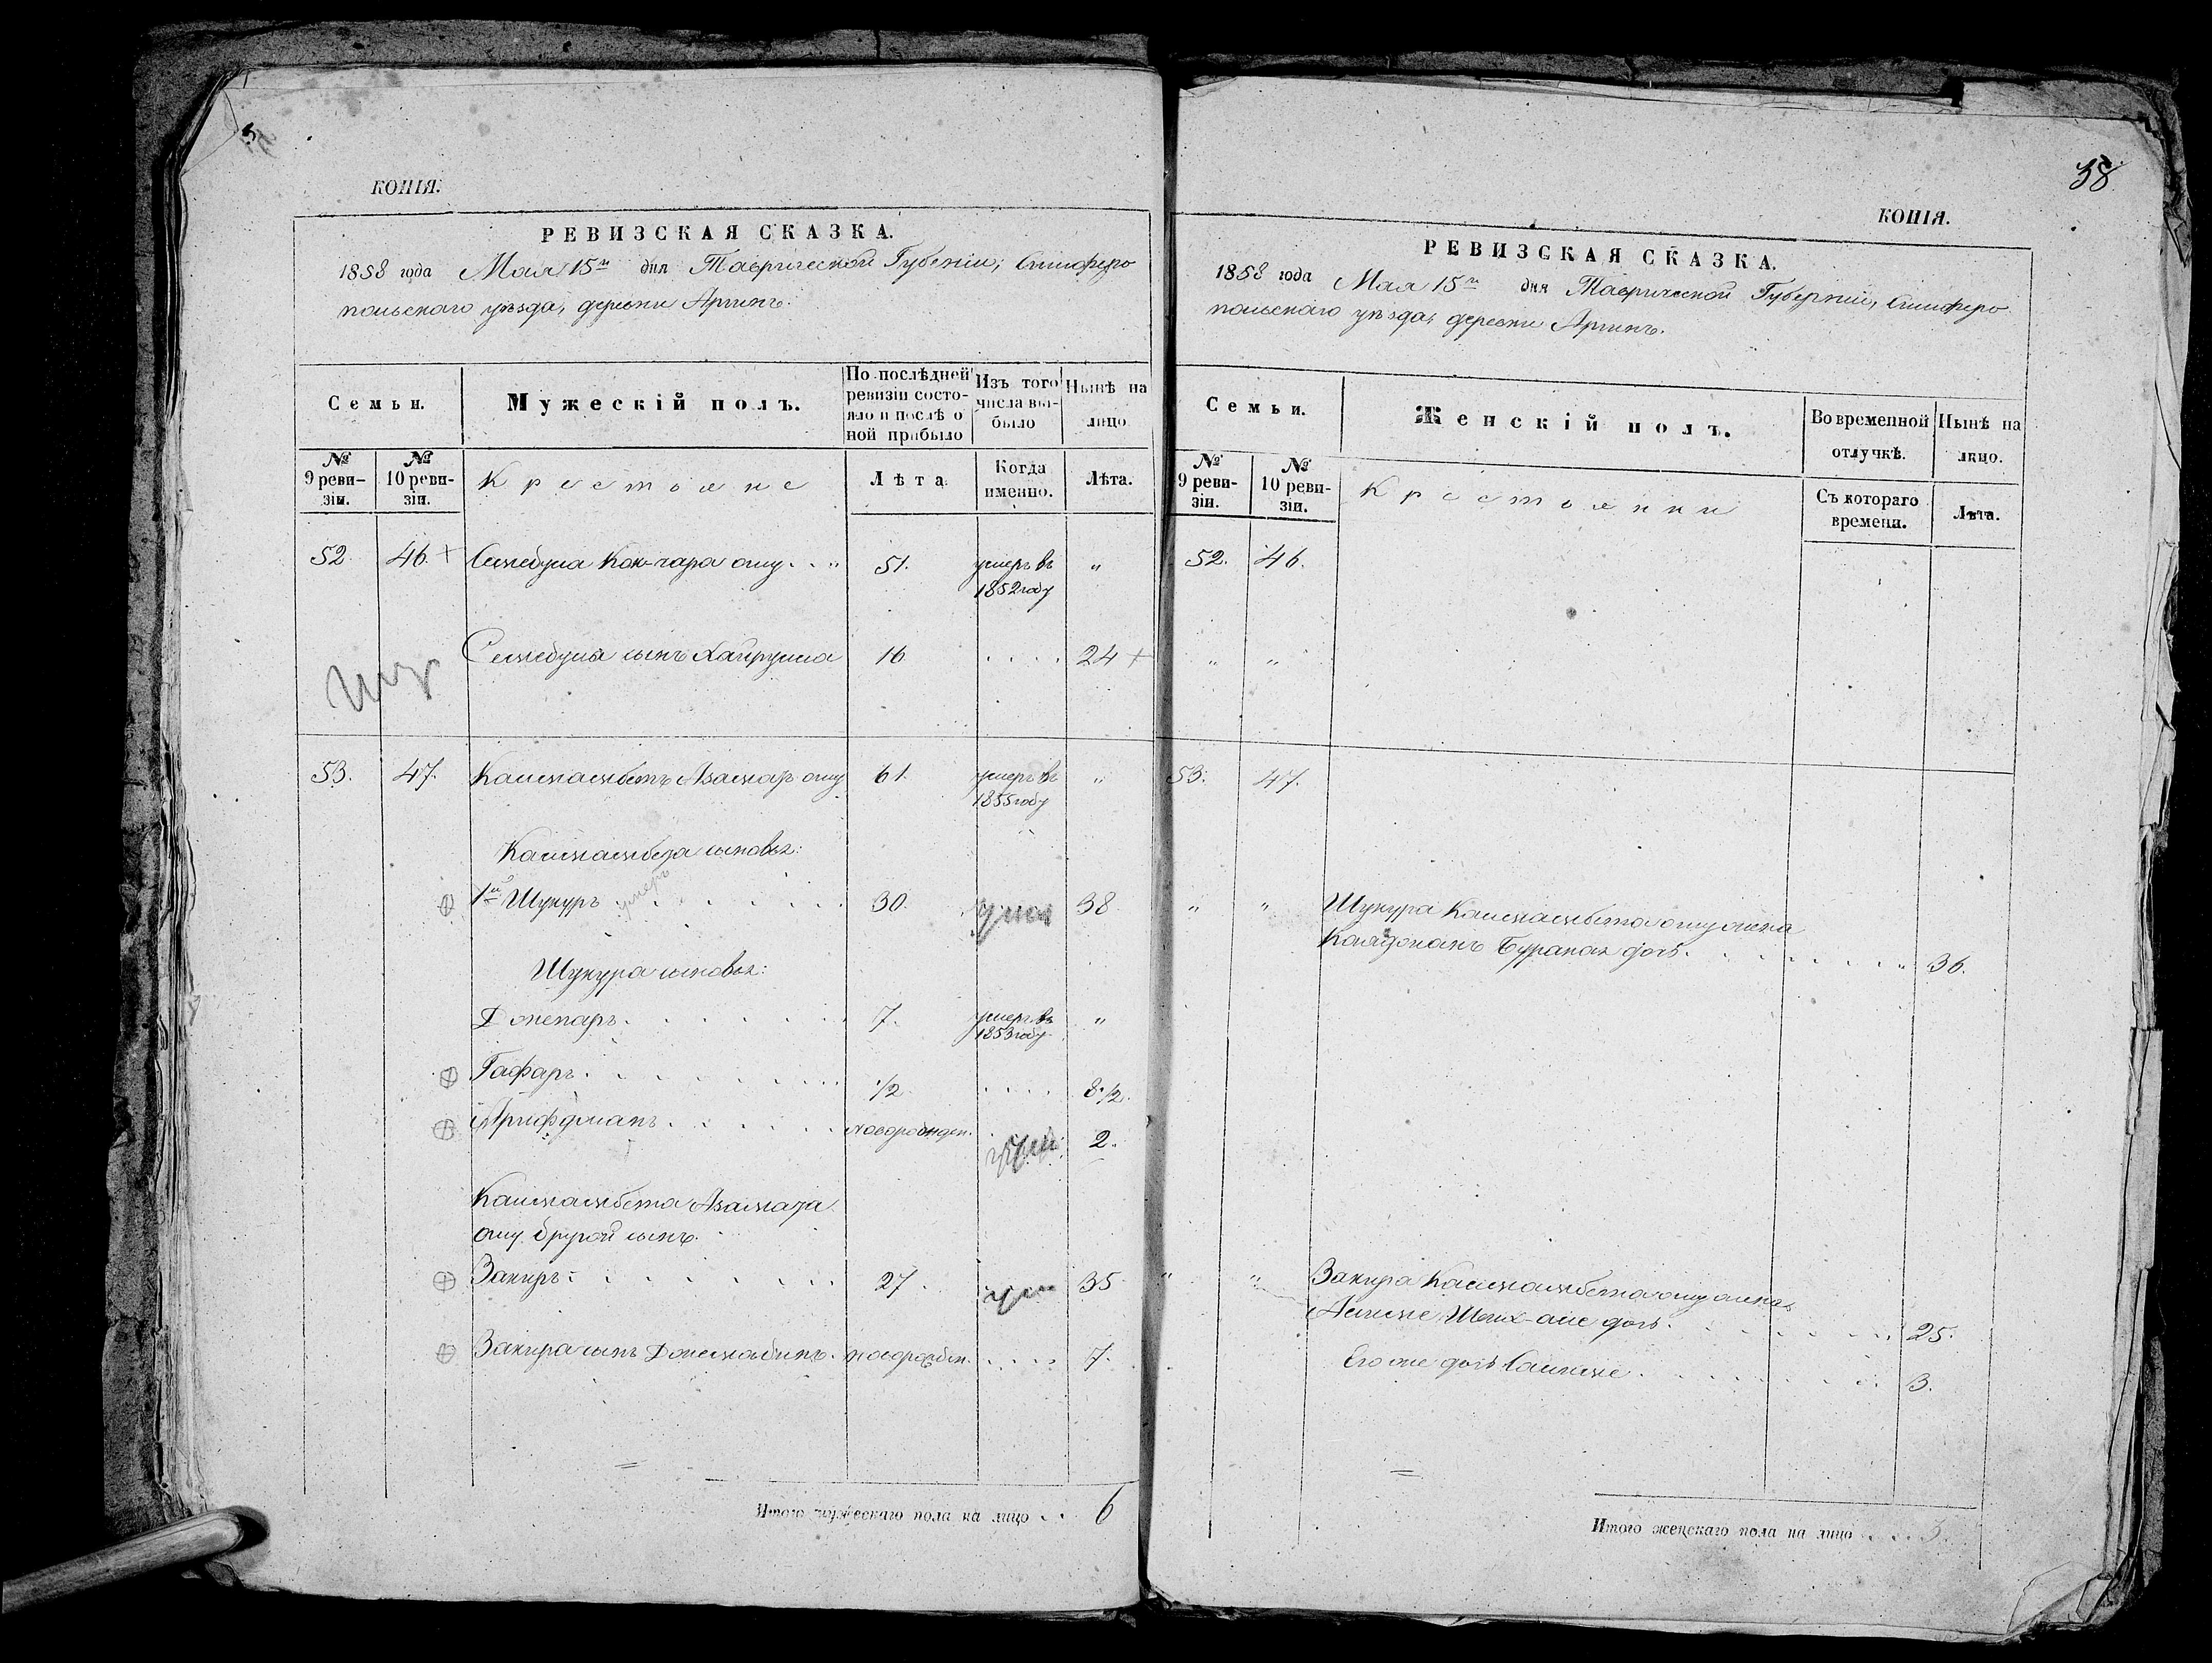 КОПІЯ.
РЕВИЗСКАЯ СКАЗКА.
1858 года Мая 15го дня Таврической Губерніи, Симферо
польскаго уѣзда, деревни Аргинъ.
Семьи.
Мужескій полъ.
По послѣдней ревизіи состояло и послѣ оной прибыло
Изъ того числа выбыло
Нынѣ на лицо
№ 9 ревизіи.
№ 10 ревизіи.
Крестьяне
Лѣта.
Когда именно.
Лѣта.
52. 46. + Сеитбула Кок-чара оглу . . " 51. умеръ въ 1852 году "
Сеитбула сынъ Хайрулла 16 . . . . 24 +
53. 47. 61. умеръ въ 1855 году "
сыновья:
1й Шукуръ умеръ 30. умер 38
Шукура сыновья:
7. умеръ въ 1853 году "
Гафаръ 1/2 . . . . 8 1/2.
новорожден. 2.
оглу другой сынъ.
Закиръ 27. 35
Закира сынъ новорожден. . . . . 7.
Итого мужескаго пола на лицо . . 6
38
КОПІЯ.
РЕВИЗСКАЯ СКАЗКА.
1858 года Мая 15го дня Таврической Губерніи, Симферо
польскаго уѣзда, деревни Аргинъ.
Семьи.
Женскій полъ.
Во временной отлучкѣ.
Нынѣ на лицо.
№ 9 ревизіи.
№ 10 ревизіи.
Крестьянки
Съ котораго времени.
Лѣта.
52. 46.
" "
53. 47.
" " Шукура оглу жена
дочь . . . . . . " 36.
" " Закира оглу жена
дочь . . . . . . 25.
Его же дочь . . . . . . 3.
Итого женскаго пола на лицо . . . . 3.